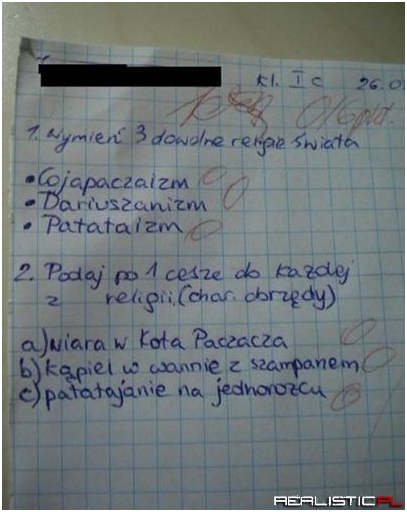 kl. I c 26.0
0/6 pkt.
1. Wymień 3 dowolne religie świata
• Cojapaczaizm 0
• Dariuszanizm 0
• Patataizm 0
2. Podaj po 1 cesze do każdej
z religii. (char. obrzędy)
a) wiara w Kota Paczacza 0
b) kąpiel w wannie z szampanem 0
c) patatajanie na jednorożcu 0
REALISTIC.PL